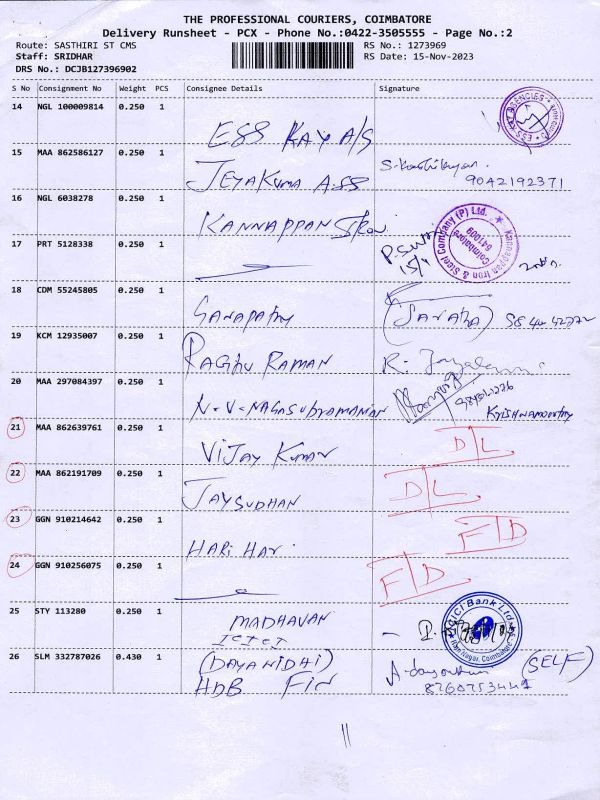 THE PROFESSIONAL COURIERS, COIMBATORE
Delivery Runsheet - PCX - Phone No.:0422-3505555 - Page No.:2
Route: SASTHIRI ST CMS
RS No.: 1273969
Staff: SRIDHAR
RS Date: 15-Nov-2023
DRS No.: DCJB127396902
S No Consignment No Weight PCS Consignee Details Signature
14 NGL 100009814 0.250 1
ESS KAY A/S
15 MAA 862586127 0.250 1
JEYAKUMA ASS
9042192371
16 NGL 6038278 0.250 1
KANNAPPAN
Kannappan Iron & Steel Company (P) Ltd.
Coimbatore
641009
17 PRT 5128338 0.250 1
18 CDM 55245805 0.250 1
Ganapathy
19 KCM 12935007 0.250 1
RAGHU RAMAN
20 MAA 297084397 0.250 1
N.V.NAGASUbramaniAN
Krishnamoorthy
21 MAA 862639761 0.250 1
VIJAY KUMAR
D/L
22 MAA 862191709 0.250 1
JAYSUDHAN
D/L
23 GGN 910214642 0.250 1
HARI HAR
F/D
24 GGN 910256075 0.250 1
F/D
25 STY 113280 0.250 1
MADHAVAN
ICICI
ICICI Bank Ltd
26 SLM 332787026 0.430 1
(DAYANIDHI)
HDB FIN
(SELF)